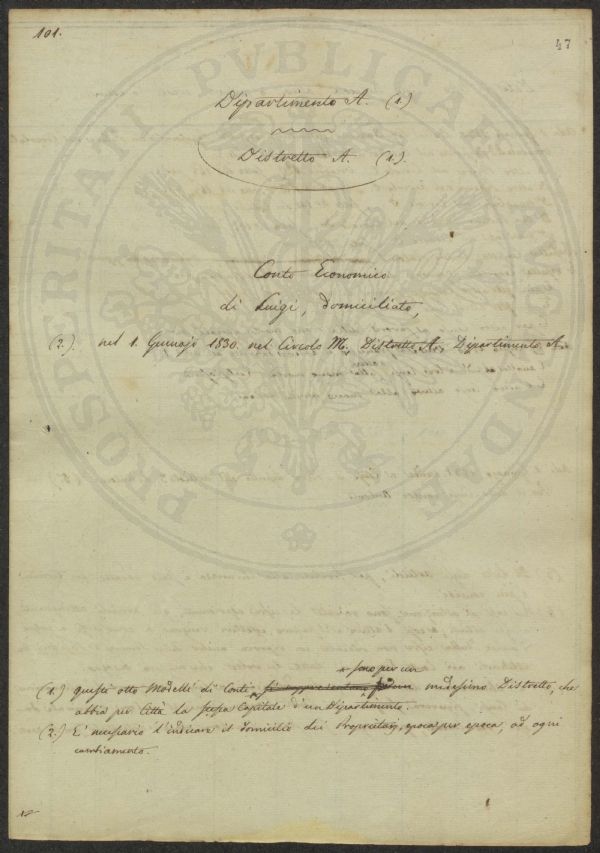 101.
47
Dipartimento A. (1.)
Distretto A. (1.)
Conto Economico
di Luigi, domiciliato,
(2.) nel 1. Gennajo 1830. nel Circolo M., Distretto A., Dipartimento A.
* sono per un
(1.) Queste otto Modelli di Conti medesimo Distretto, che
abbia per Città la stessa Capitale d'un Dipartimento.
(2.) E' necessario l'indicare il domicilio dei Proprietarj, epoca per epoca, ad ogni
cambiamento.
PROSPERITATI PVBLICAE AVGENDAE